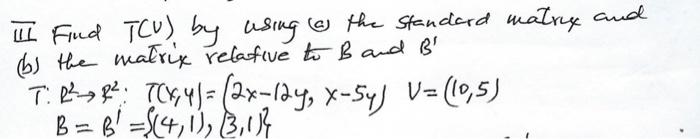 III Find T(V) by using (a) the standard matrix and
(b) the matrix relative to B and B'
T: R²→R²: T(x,y) = (2x-12y, x-5y) V = (10,5)
B = B' = {(4,1), (3,1)}